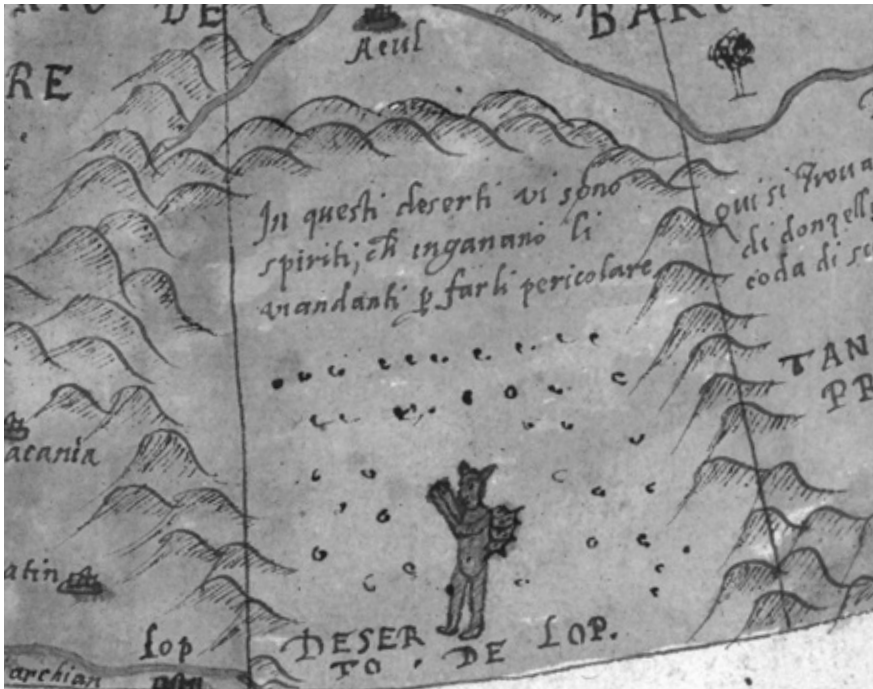 DE
BAR
RE
Acul
In questi deserti vi sono
spiriti, ch inganano li
viandanti p farli pericolare
qui si trova
di donzell
coda di
TAN
PR
acania
atin
Lop
archian
DESER
TO. DE LOP.